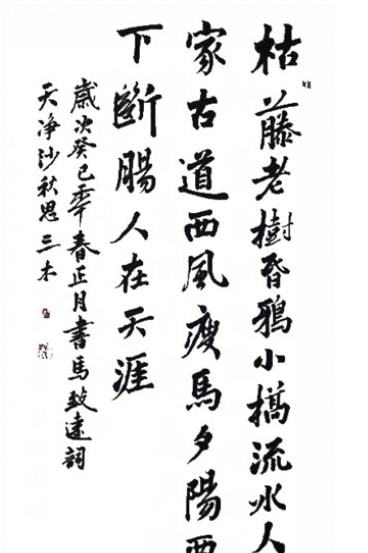 枯藤老樹昏鴉小橋流水人
家古道西風瘦馬夕陽西
下斷腸人在天涯
歲次癸巳年春正月書馬致遠詞
天净沙秋思三木